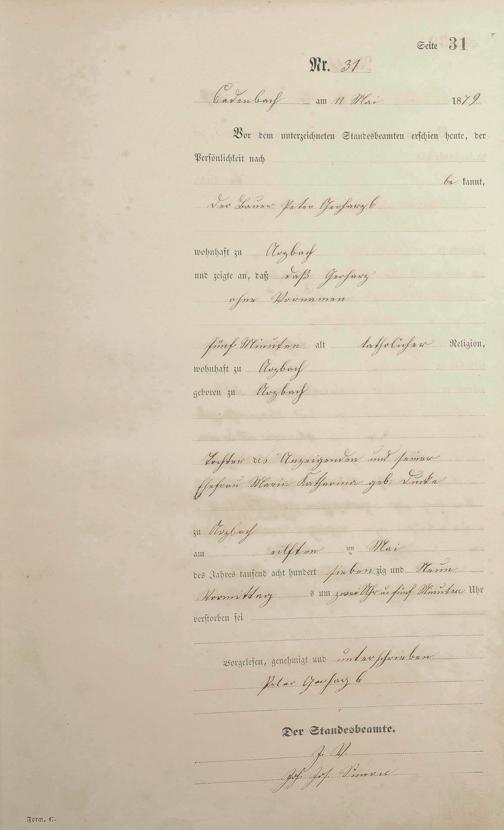 Seite 31
Nr. 31
Cadenbach am 11 Mai 1879
Vor dem unterzeichneten Standesbeamten erschien heute, der
Persönlichkeit nach
be kannt,
der Bauer Peter Gerharz 6
wohnhaft zu Arzbach
und zeigte an, daß daß Gerharz
ohne Vornamen
fünf Minuten alt katholischer Religion,
wohnhaft zu Arzbach
geboren zu Arzbach
Tochter des Anzeigenden und seiner
Ehefrau Maria Katharina geb.
zu Arzbach
am eilften Mai
des Jahres tausend acht hundert siebenzig und Neun
Vormittags um zwei Uhr u fünf Minuten Uhr
verstorben sei
Vorgelesen, genehmigt und unterschrieben
Peter Gerharz 6
Der Standesbeamte.
J. V.
Joh. Jos. Simon
Form. C.